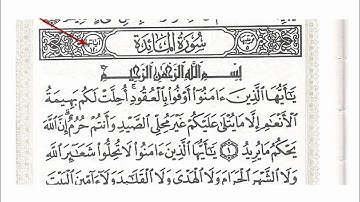 سُورَةُ المَائِدَةِ
بِسْمِ اللَّهِ الرَّحْمَٰنِ الرَّحِيمِ
يَٰٓأَيُّهَا ٱلَّذِينَ ءَامَنُوٓا۟ أَوْفُوا۟ بِٱلْعُقُودِ أُحِلَّتْ لَكُم بَهِيمَةُ
ٱلْأَنْعَٰمِ إِلَّا مَا يُتْلَىٰ عَلَيْكُمْ غَيْرَ مُحِلِّى ٱلصَّيْدِ وَأَنتُمْ حُرُمٌ إِنَّ ٱللَّهَ
يَحْكُمُ مَا يُرِيدُ ١ يَٰٓأَيُّهَا ٱلَّذِينَ ءَامَنُوا۟ لَا تُحِلُّوا۟ شَعَٰٓئِرَ ٱللَّهِ
وَلَا ٱلشَّهْرَ ٱلْحَرَامَ وَلَا ٱلْهَدْىَ وَلَا ٱلْقَلَٰٓئِدَ وَلَآ ءَآمِّينَ ٱلْبَيْتَ